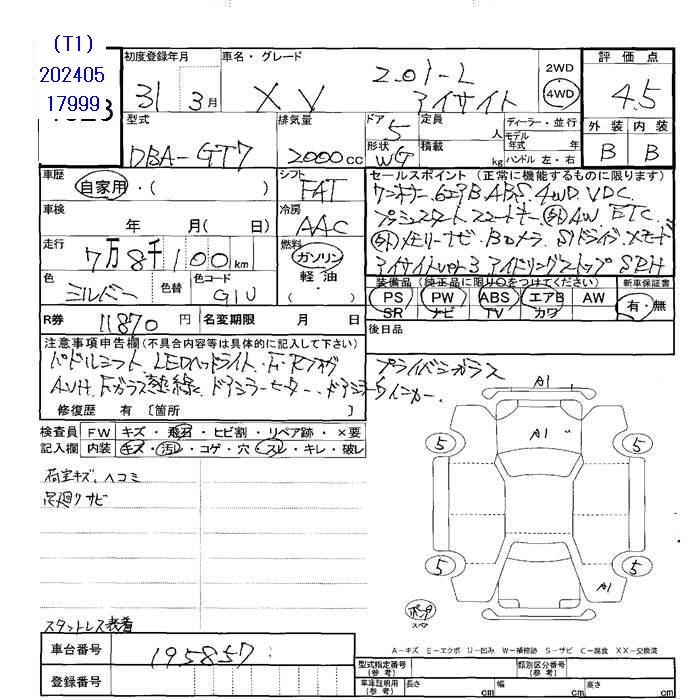 (T1)
202405
17999
初度登録年月
31 3月
車名・グレード
XV
2.0i-L
アイサイト
2WD
4WD
評価点
4.5
外装 内装
B B
型式
DBA-GT7
排気量
2000cc
ドア
5
定員
人
形状
WG
積載
kg
ディーラー・並行
モデル年式 年
ハンドル 左・右
車歴
自家用・( )
シフト
FAT
車検
年 月( 日)
冷房
AAC
走行
7万8千100km
燃料
ガソリン
軽・油
( )
色
シルバー
色替
色コード
G1U
セールスポイント (正常に機能するものに限ります)
ワンオーナー.6エアB.ABS.4WD.VDC.
プッシュスタート スマートキー.外AW ETC
外メモリーナビ.Bカメラ.SIドライブ.Xモード
アイサイトver3 アイドリングストップ SRH
装備品 (純正品に限り○をつけてください)
PS PW ABS エアB AW
SR ナビ TV カワ
新車保証書
有・無
R券 11870円
名変期限 月 日
後日品
注意事項申告欄 (不具合内容等は具体的に記入して下さい)
パドルシフト.LEDヘッドライト.F.Rフォグ
プライバシーガラス
AVH.Fガラス熱線.ドアミラーヒーター.ドアミラーウインカー.
修復歴 有 [箇所 ]
検査員
記入欄
FW キズ・飛石・ヒビ割・リペア跡・×要
内装 キズ・汚レ・コゲ・穴・スレ・キレ・破レ
荷室キズ、ヘコミ
足廻りサビ
A1
A1
5 5
5 5
A1
パンク
スペア
スタットレス装着
A-キズ E-エクボ U-凹み W-補修跡 S-サビ C-腐食 XX-交換済
車台番号
195857
登録番号
型式指定番号
(参考)
類別区分番号
(参考)
車庫証明用
(参考)
長さ cm 幅 cm 高さ cm